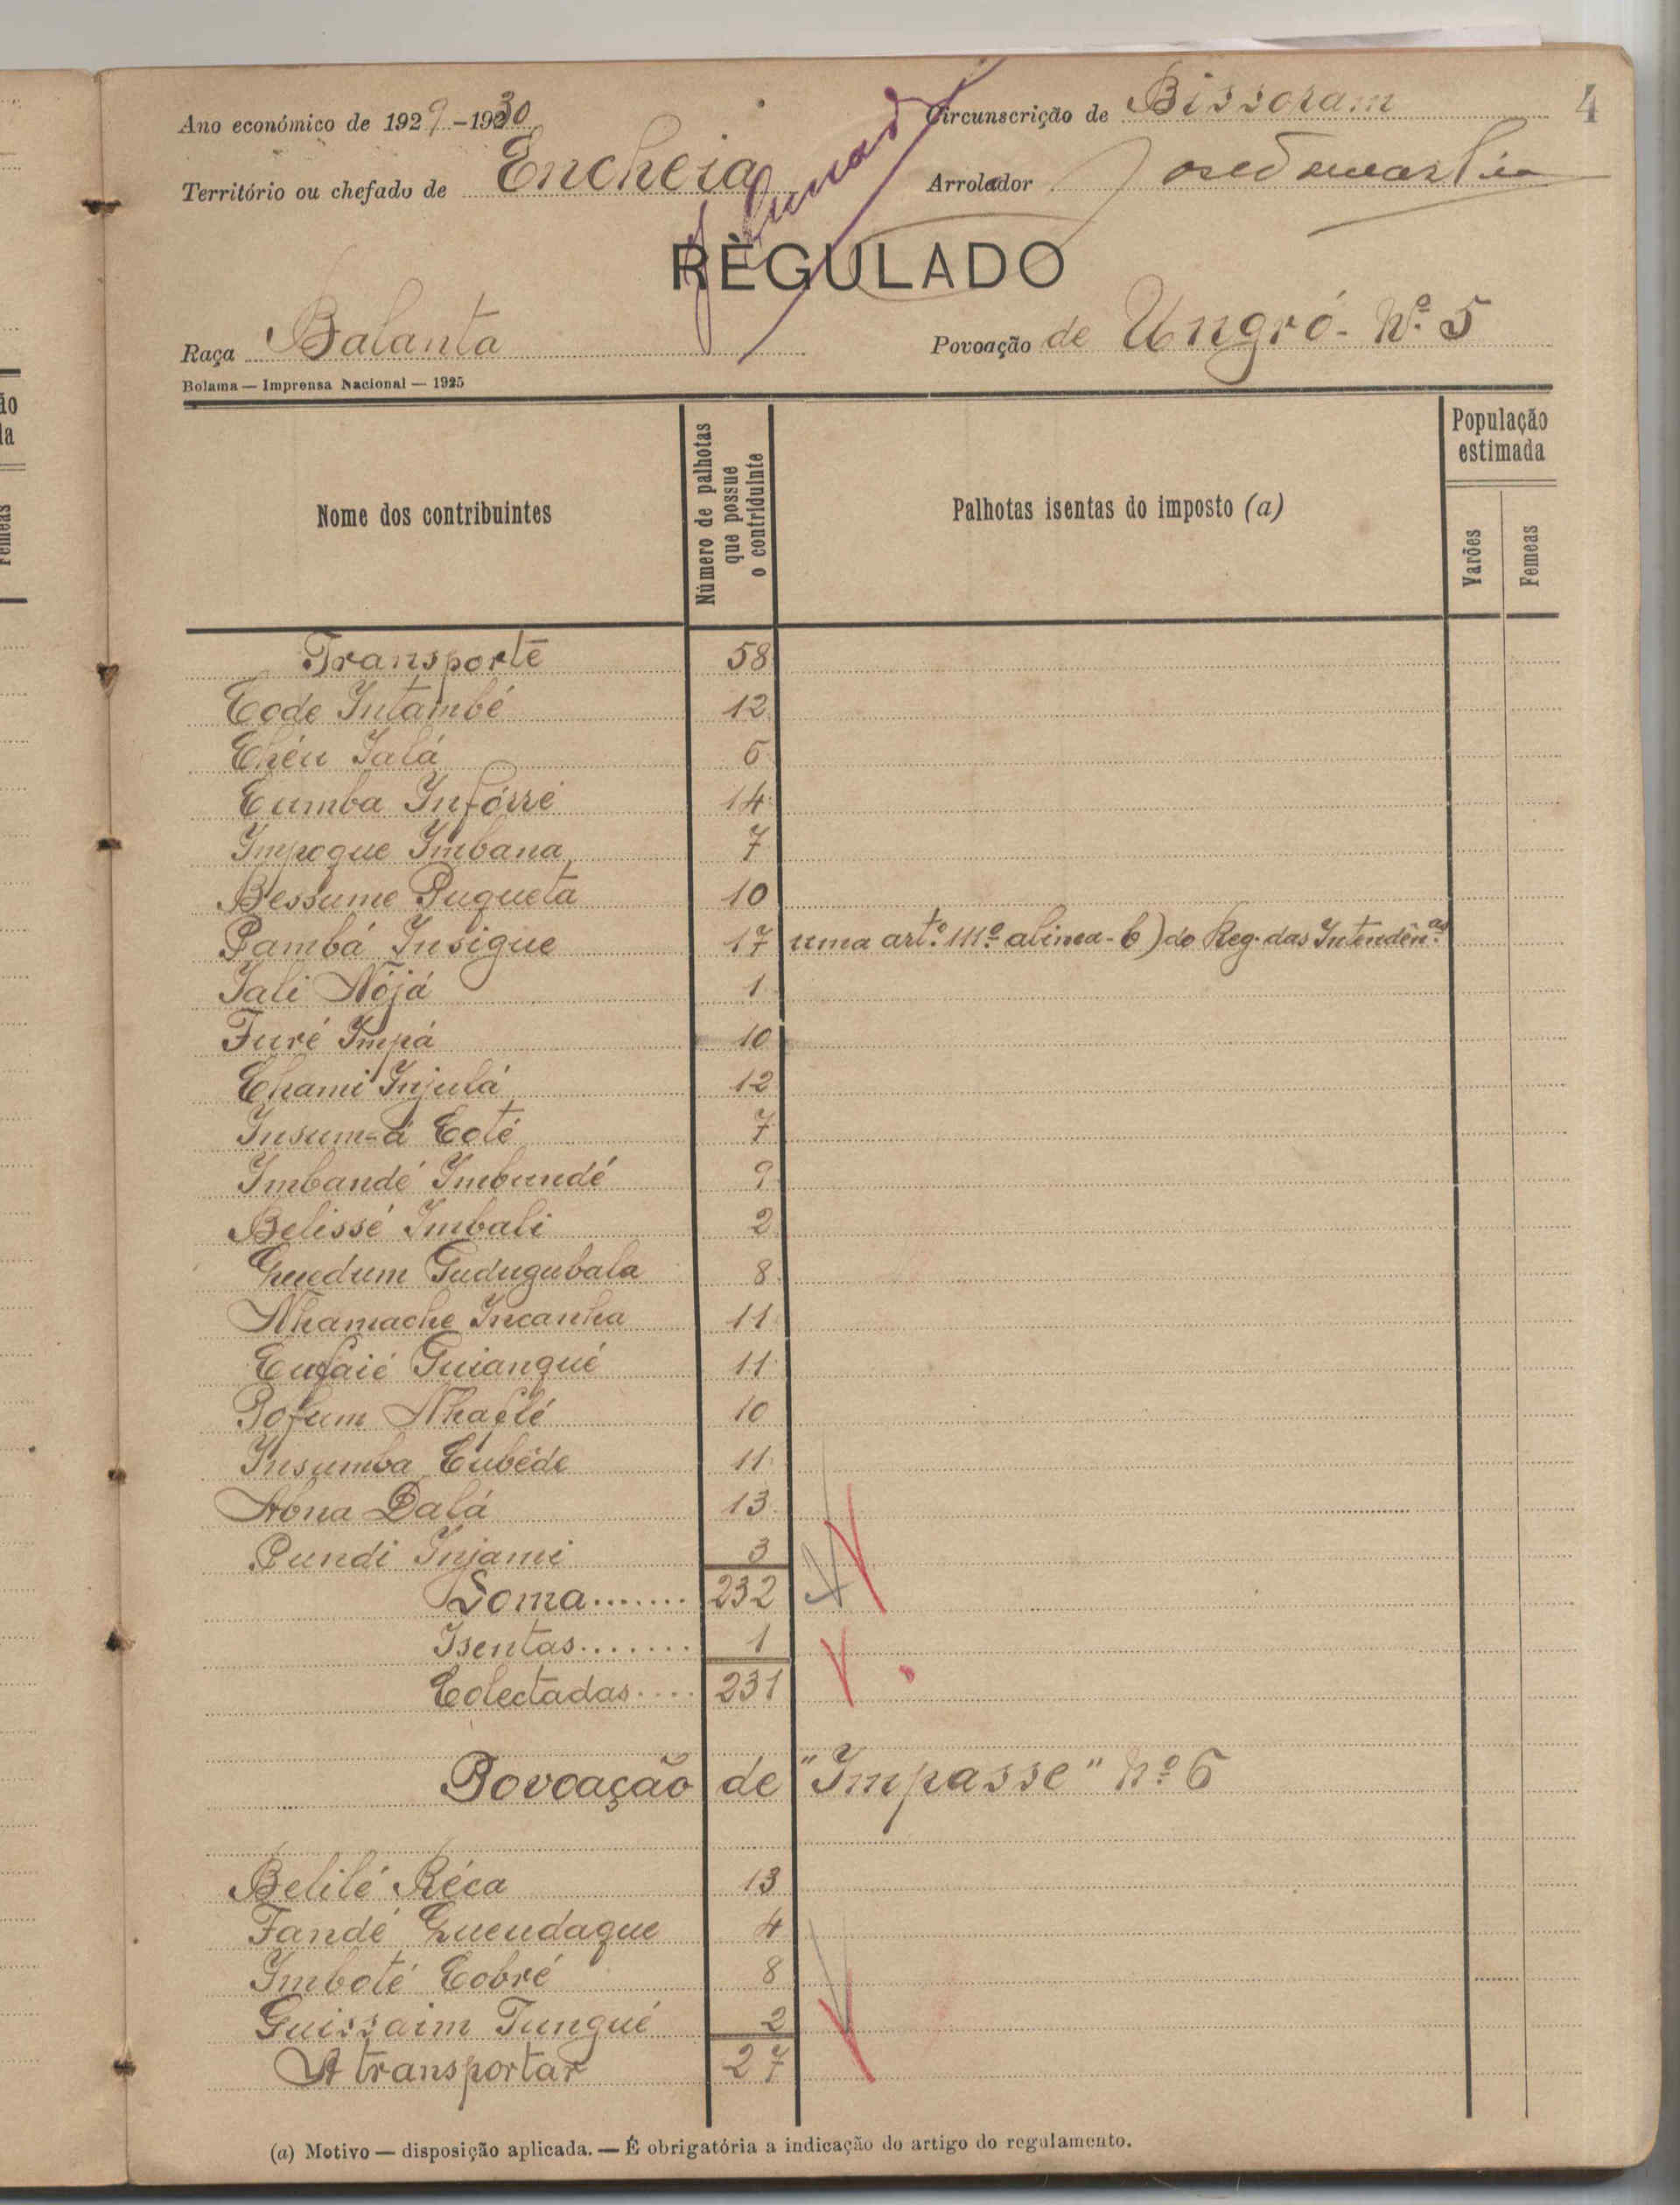 Ano económico de 1929-1930
Circunscrição de Bissoram
4
Território ou chefado de Encheia
Arrolador
RÈGULADO
Raça Balanta
Povoação de Ungró - Nº 5
Bolama — Imprensa Nacional — 1925
Nome dos contribuintes
Número de palhotas que possue o contriduinte
Palhotas isentas do imposto (a)
População estimada
Varões
Femeas
Transporte 58
Code Intambé 12
Chéu Ialá 6
Cumba Infórré 14
Impogue Imbana 7
Bessume Puguetá 10
Pambá Insigue 17 uma artº 111º alinea - b) do Reg. das Intendên.as
Iali Nójá 1
Furé Impá 10
Chami Injulá 12
Insum-á Coté 7
Imbandé Imbundé 9
Belissé Imbali 2
Guedum Gudugubala 8
Nhamache Incanha 11
Cufaié Guiangué 11
Pofum Nhaflé 10
Insumba Cubéde 11
Abna Dalá 13
Pundi Injami 3
Soma....... 232
Isentas....... 1
Colectadas.... 231
Povoação de "Impasse" nº 6
Belilé Réca 13
Fandé Guendaque 4
Imboté Cobré 8
Guissaim Tungué 2
A transportar 27
(a) Motivo — disposição aplicada. — É obrigatória a indicação do artigo do regulamento.